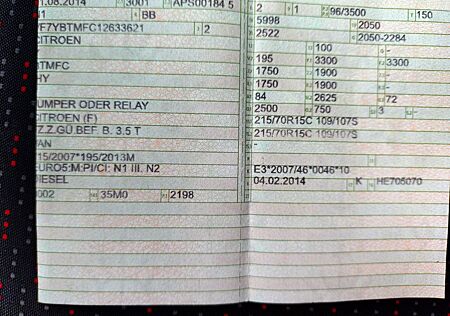 01.08.2014 3001 APS00184 5
BB
VF7YBTMFC12633621 2
CITROEN
BTMFC
HY
JUMPER ODER RELAY
CITROEN (F)
FZ.Z.GÜ BEF. B. 3.5 T
VAN
715/2007*195/2013M
EURO5;M;PI/CI: N1 III. N2
DIESEL
0002 35M0 2198
2 1 96/3500 150
5998 2050
2522 2050-2284
100 -
195 3300 3300
1750 1900 -
1750 1900 -
84 2625 72
2500 750 3 -
215/70R15C 109/107S
215/70R15C 109/107S
-
E3*2007/46*0046*10
04.02.2014 K HE705070